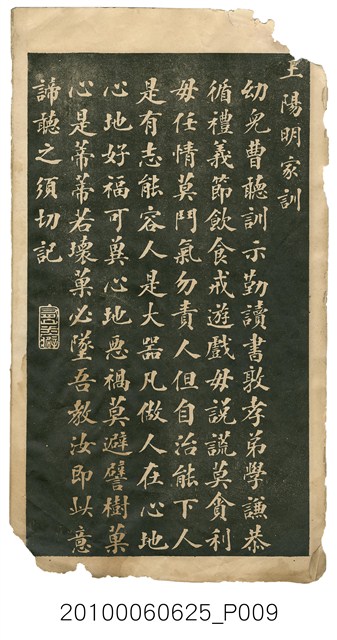 王陽明家訓
幼兒曹聽訓示勤讀書敦孝弟學謙恭
循禮義節飲食戒遊戲毋說謊莫貪利
毋任情莫鬥氣勿責人但自治能下人
是有志能容人是大器凡做人在心地
心地好福可冀心地惡禍莫避譬樹菓
心是蒂蒂若壞菓必墜吾教汝即此意
諦聽之須切記
20100060625_P009